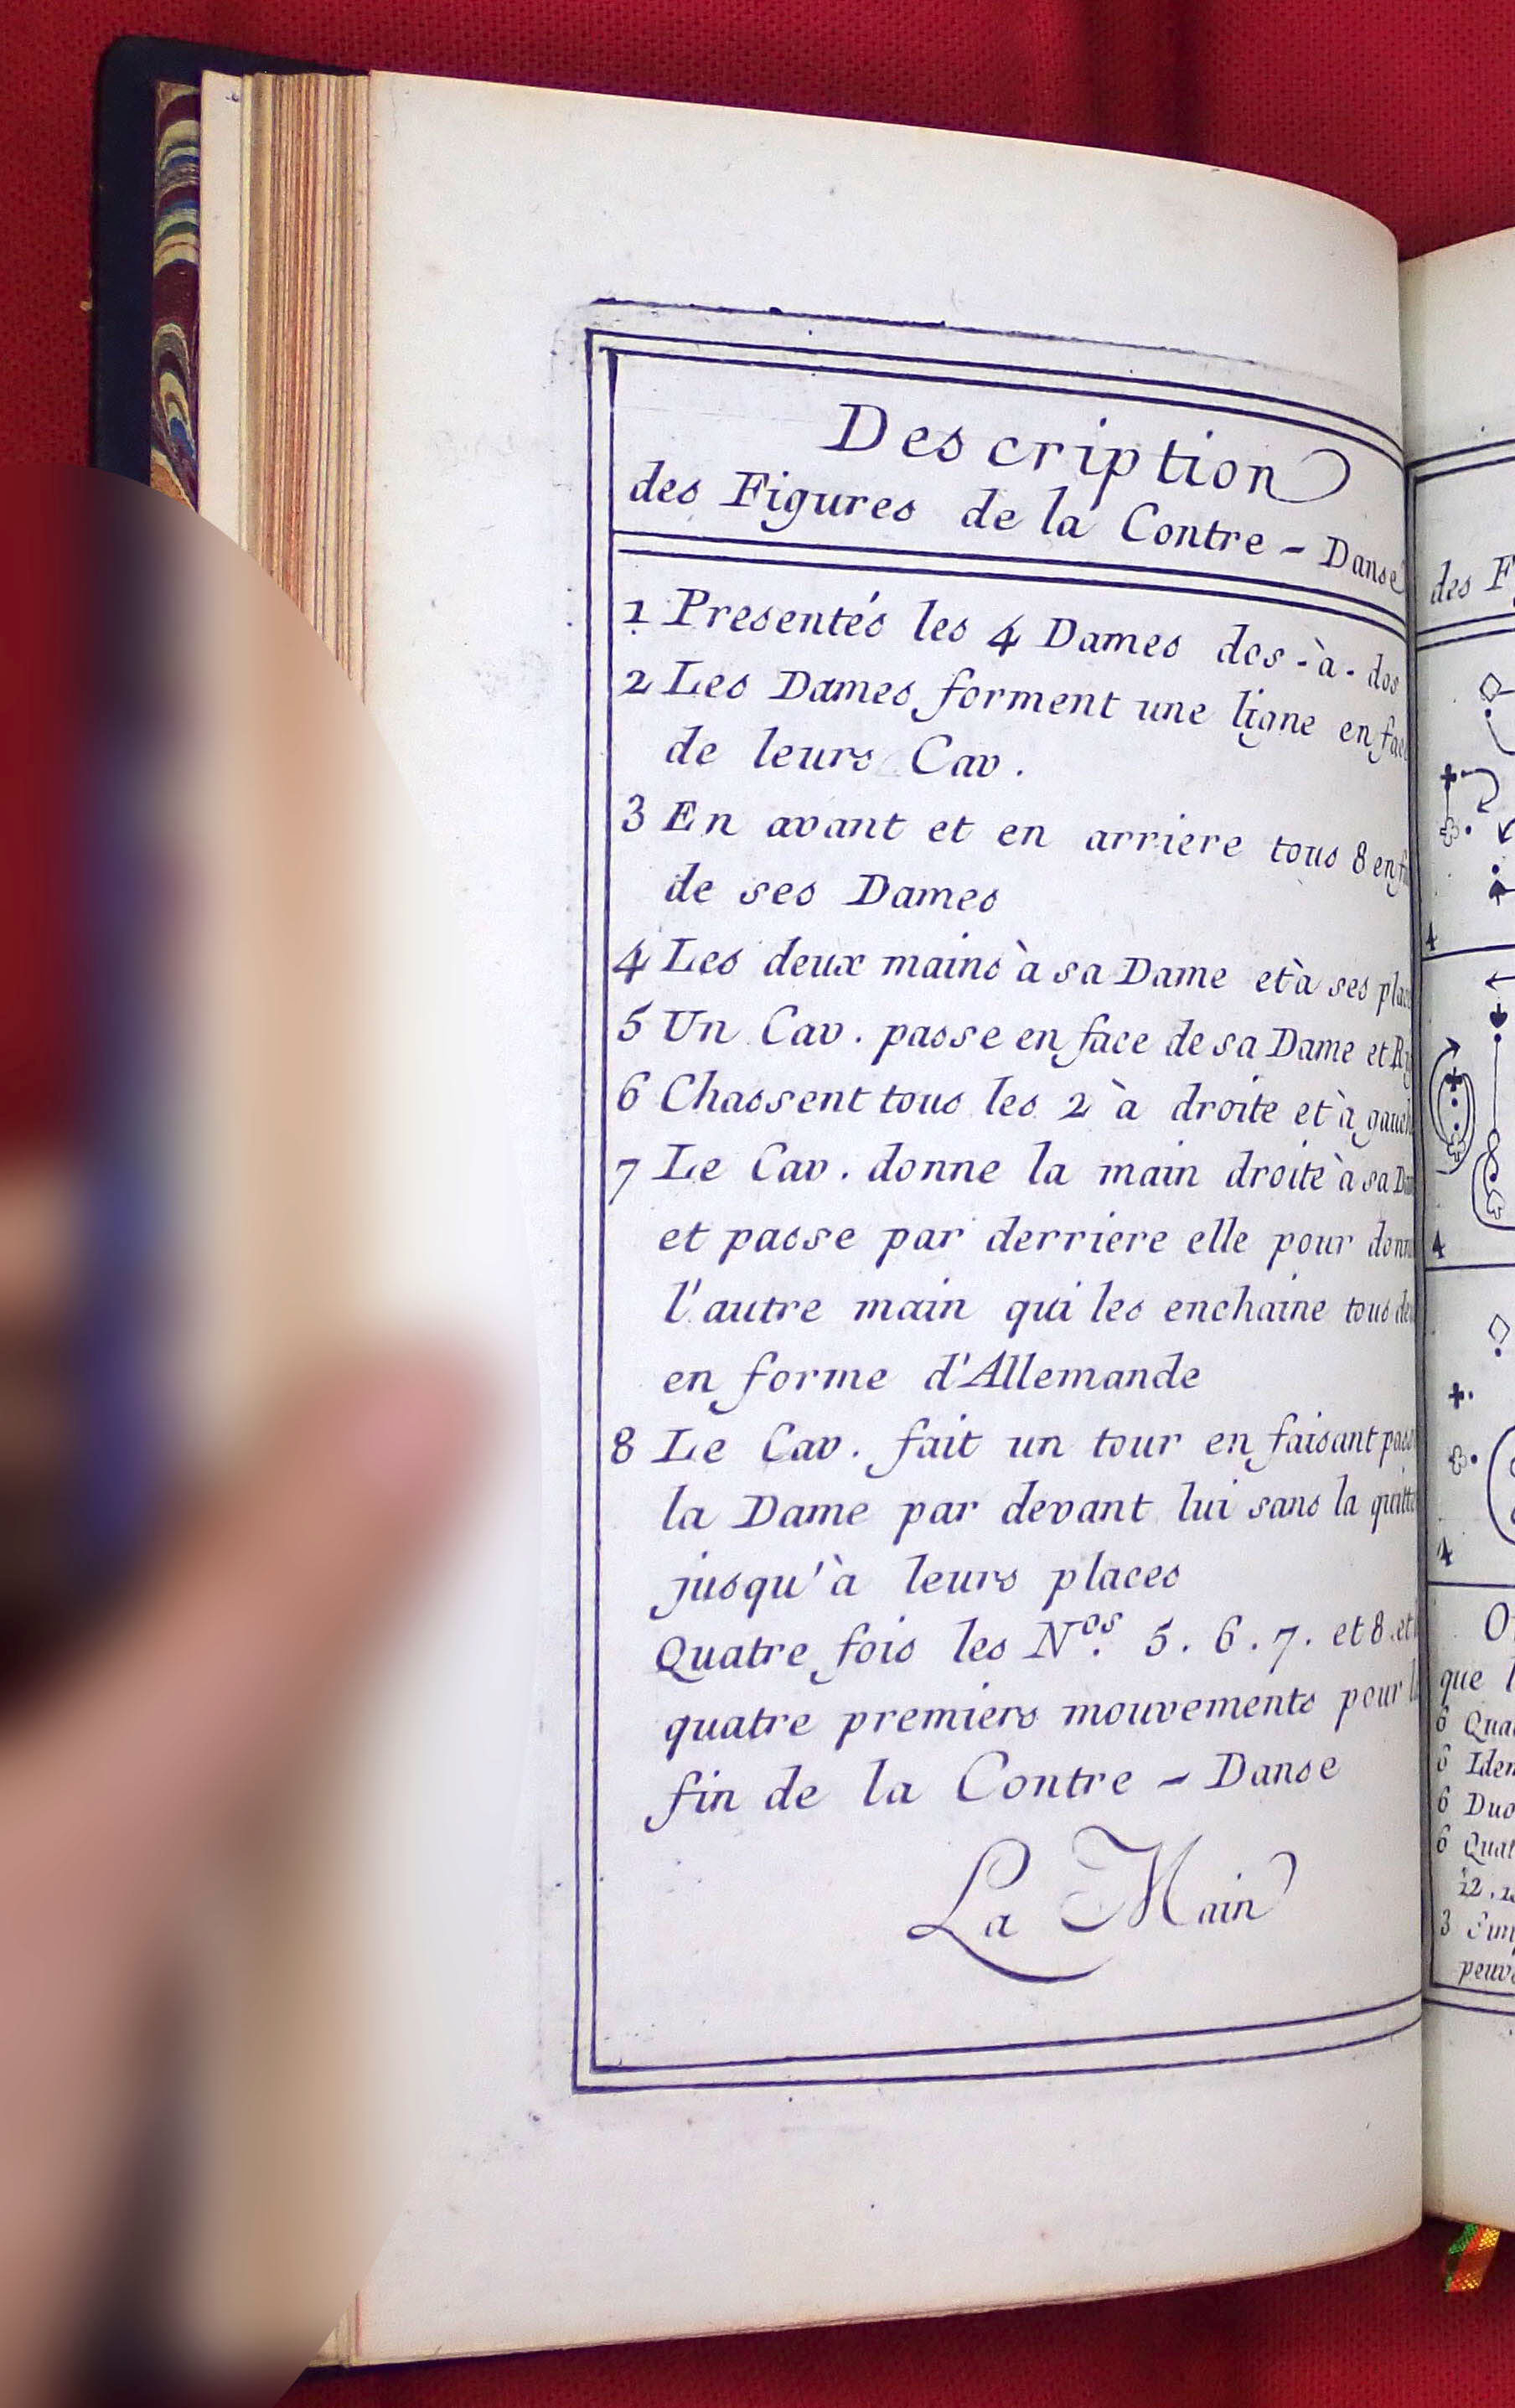 Description
des Figures de la Contre - Danse
1 Presentés les 4 Dames dos - à - dos
2 Les Dames forment une ligne en
de leurs Cav.
3 En avant et en arriere tous 8
de ses Dames
4 Les deux mains à sa Dame et à ses
5 Un Cav. passe en face de sa Dame et
6 Chassent tous les 2 à droite et à
7 Le Cav. donne la main droite à sa
et passe par derriere elle pour
l'autre main qui les enchaine tous
en forme d'Allemande
8 Le Cav. fait un tour en faisant
la Dame par devant lui sans la
jusqu'à leurs places
Quatre fois les Nos. 5. 6. 7. et 8. et
quatre premiers mouvements pour
fin de la Contre - Danse
La Main
des
4
4
4
que
6
6
6
6
3